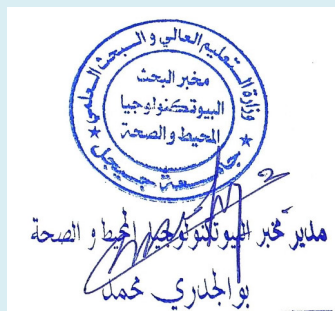 وزارة التعليم العالي و البحث العلمي
مخبر البحث
البيوتكنولوجيا
المحيط والصحة
جامعة جيجل
مدير مخبر البيوتكنولوجيا المحيط و الصحة
بوالجدري محمد